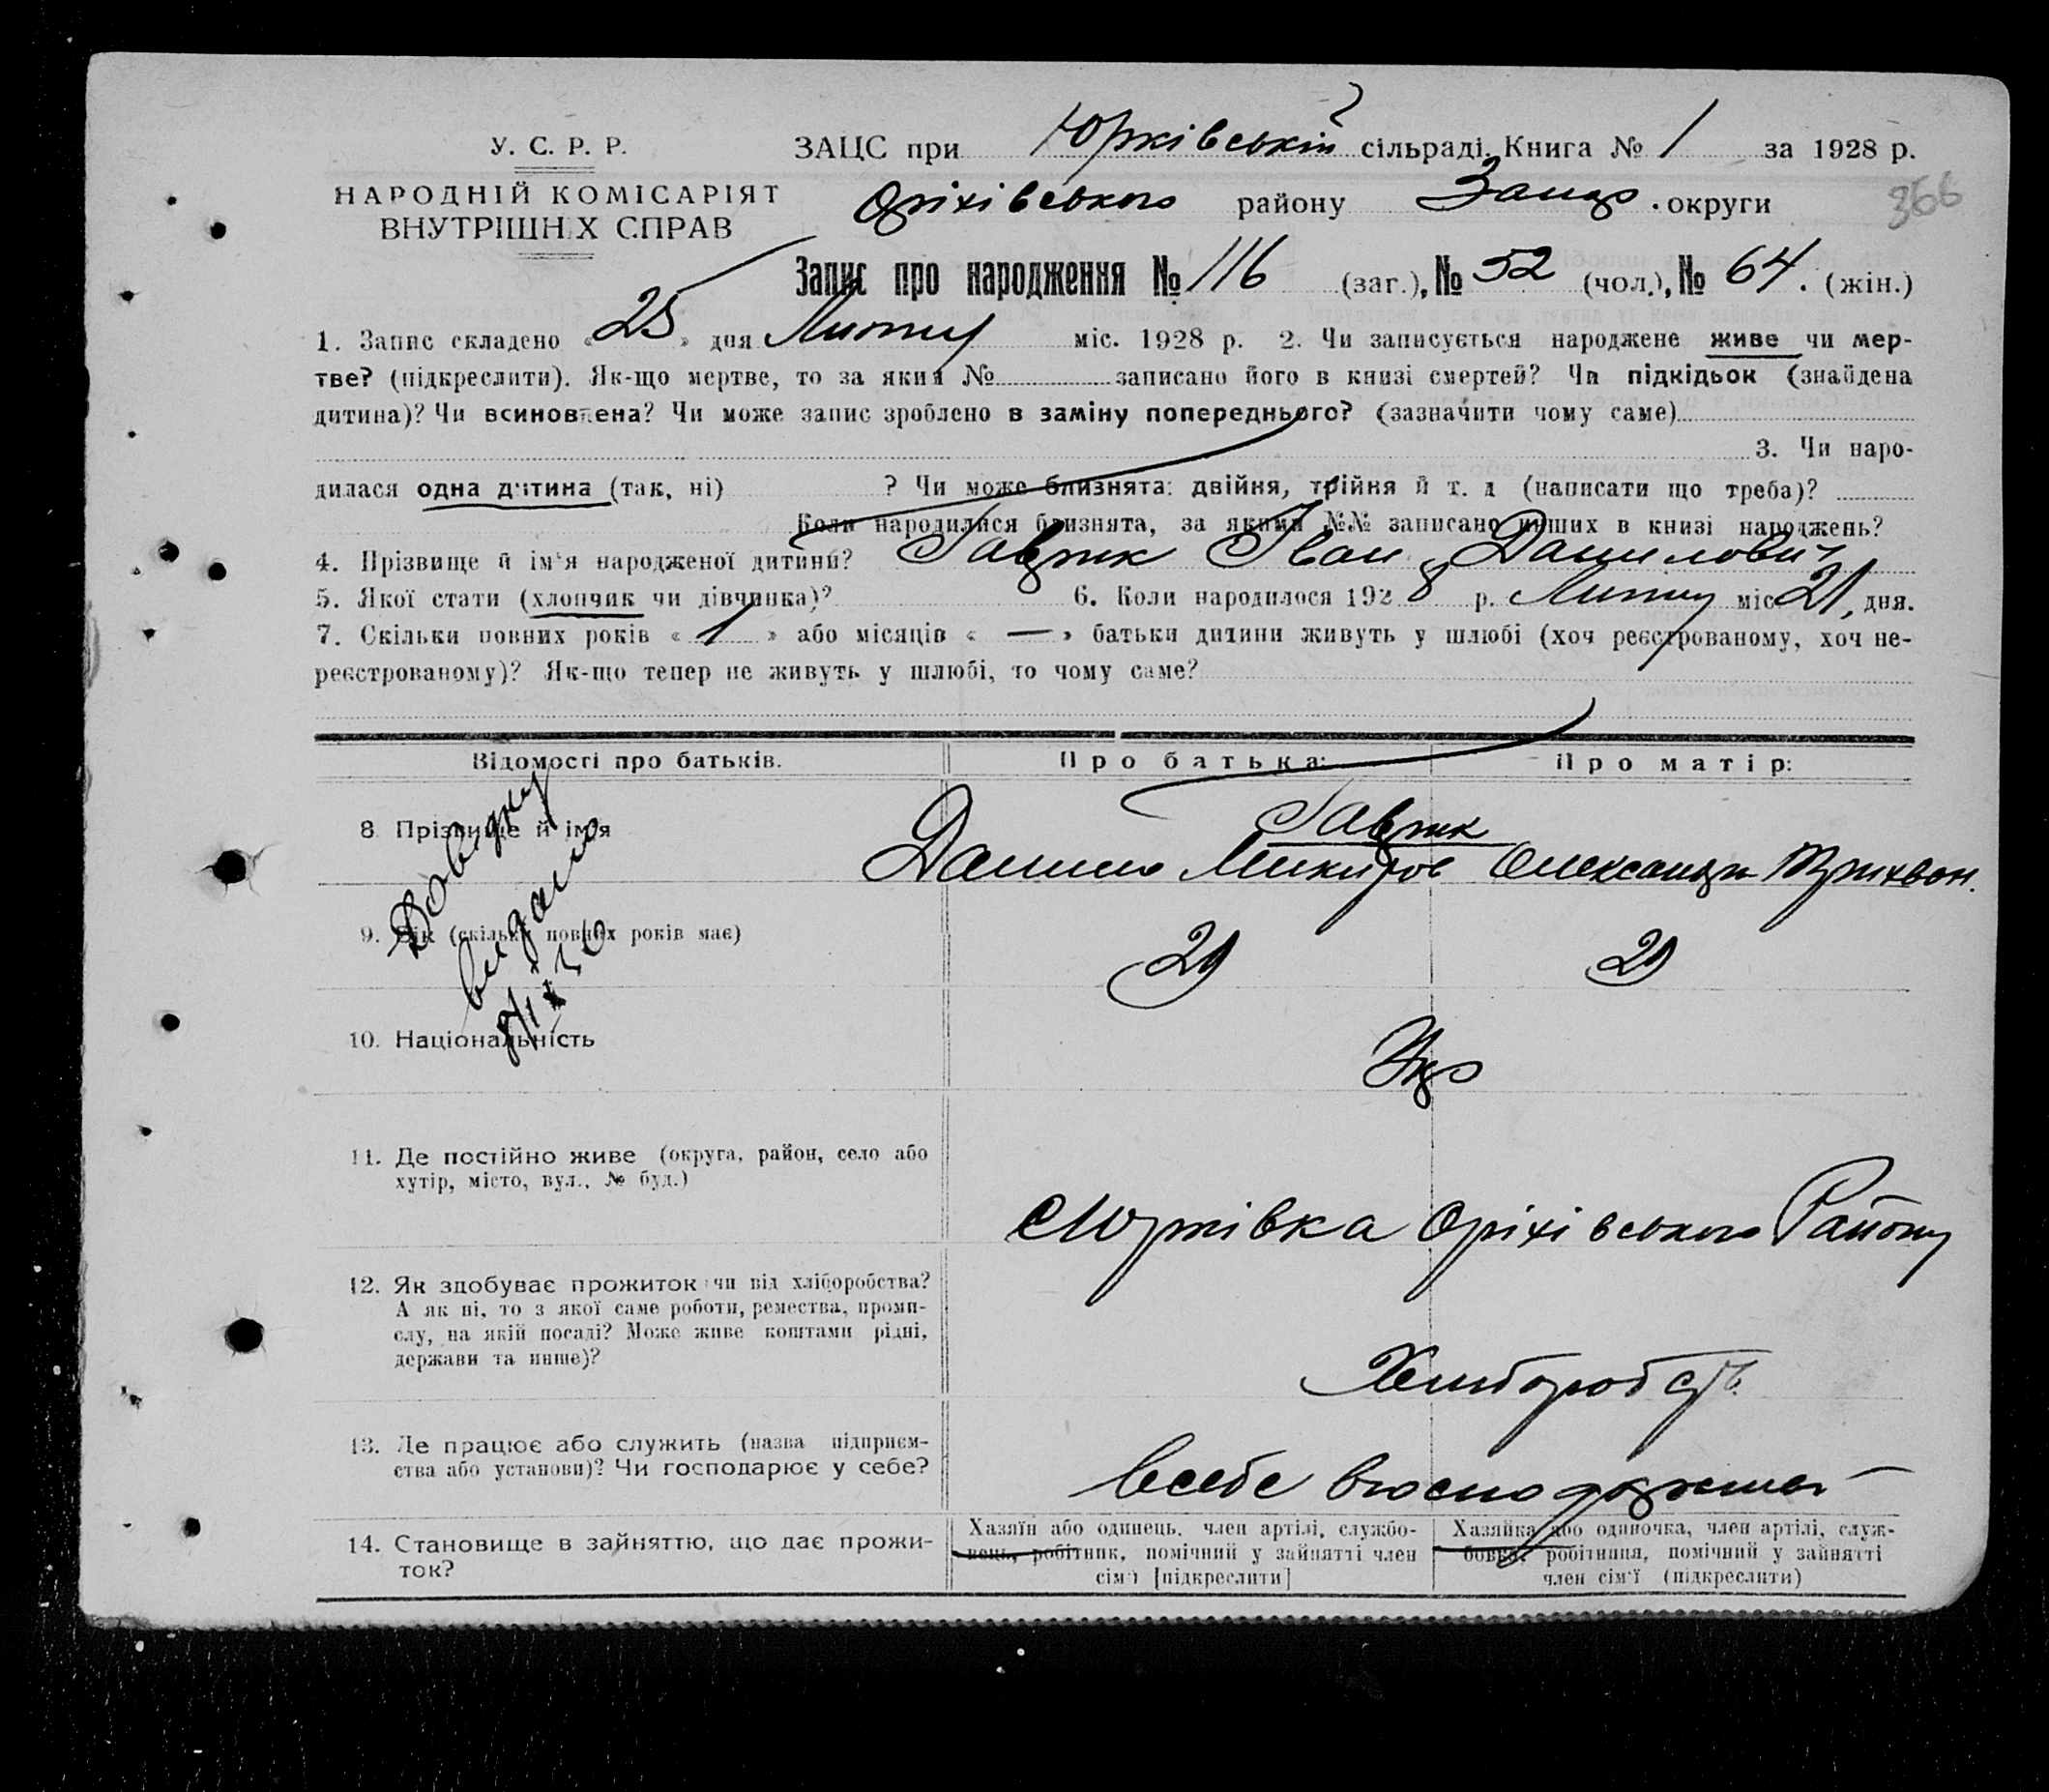 У. С. Р. Р.
НАРОДНІЙ КОМІСАРІЯТ
ВНУТРІШНІХ СПРАВ
ЗАЦС при Юрківській сільраді. Книга № 1 за 1928 р.
Оріхівського району Запор. округи
366
Запис про народження № 116 (заг.), № 52 (чол.), № 64. (жін.)
1. Запис складено « 25 » дня Липня міс. 1928 р. 2. Чи записується народжене живе чи мер-
тве? (підкреслити). Як-що мертве, то за яким № записано його в книзі смертей? Чи підкідьок (знайдена
дитина)? Чи всиновлена? Чи може запис зроблено в заміну попереднього? (зазначити чому саме)
3. Чи наро-
дилася одна дитина (так, ні) ? Чи може близнята: двійня, трійня й т. д (написати що треба)?
Коли народилися близнята, за якими №№ записано инших в книзі народжень?
4. Прізвище й ім'я народженої дитини? Гаврик Іван Данилович
5. Якої стати (хлопчик чи дівчинка)? 6. Коли народилося 1928 р. Липня міс 21, дня.
7. Скільки повних років « 1 » або місяців « — » батьки дитини живуть у шлюбі (хоч реєстрованому, хоч не-
реєстрованому)? Як-що тепер не живуть у шлюбі, то чому саме?
Відомості про батьків. Про батька: Про матір:
8 Прізвище й ім'я
Гаврик
Данило Микитов Олександра Трихвон.
Довідку
видано
9. Вік (скільки повних років має) 29 29
10. Національність Укр
11. Де постійно живе (округа, район, село або
хутір, місто, вул., № буд.)
с Юрківка Оріхівського Району
12. Як здобуває прожиток чи від хліборобства?
А як ні, то з якої саме роботи, ремества, проми-
слу, на якій посаді? Може живе коштами рідні,
держави та инше)?
Хлиборобств.
13. Де працює або служить (назва підприєм-
ства або установи)? Чи господарює у себе?
Всебе вгосподарстві
14. Становище в зайняттю, що дає прожи-
ток?
Хазяїн або одинець, член артілі, службо-
вець, робітник, помічний у зайнятті член
сім'ї [підкреслити]
Хазяйка або одиночка, член артілі, служ-
бовка, робітниця, помічний у зайнятті
член сім'ї (підкреслити)